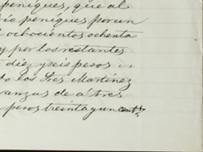 peniques, que al
peniques por un
ochocientos ochenta
y por los restantes
diez y seis pesos
los Sres Martinez
de a tres
pesos treinta y un cent